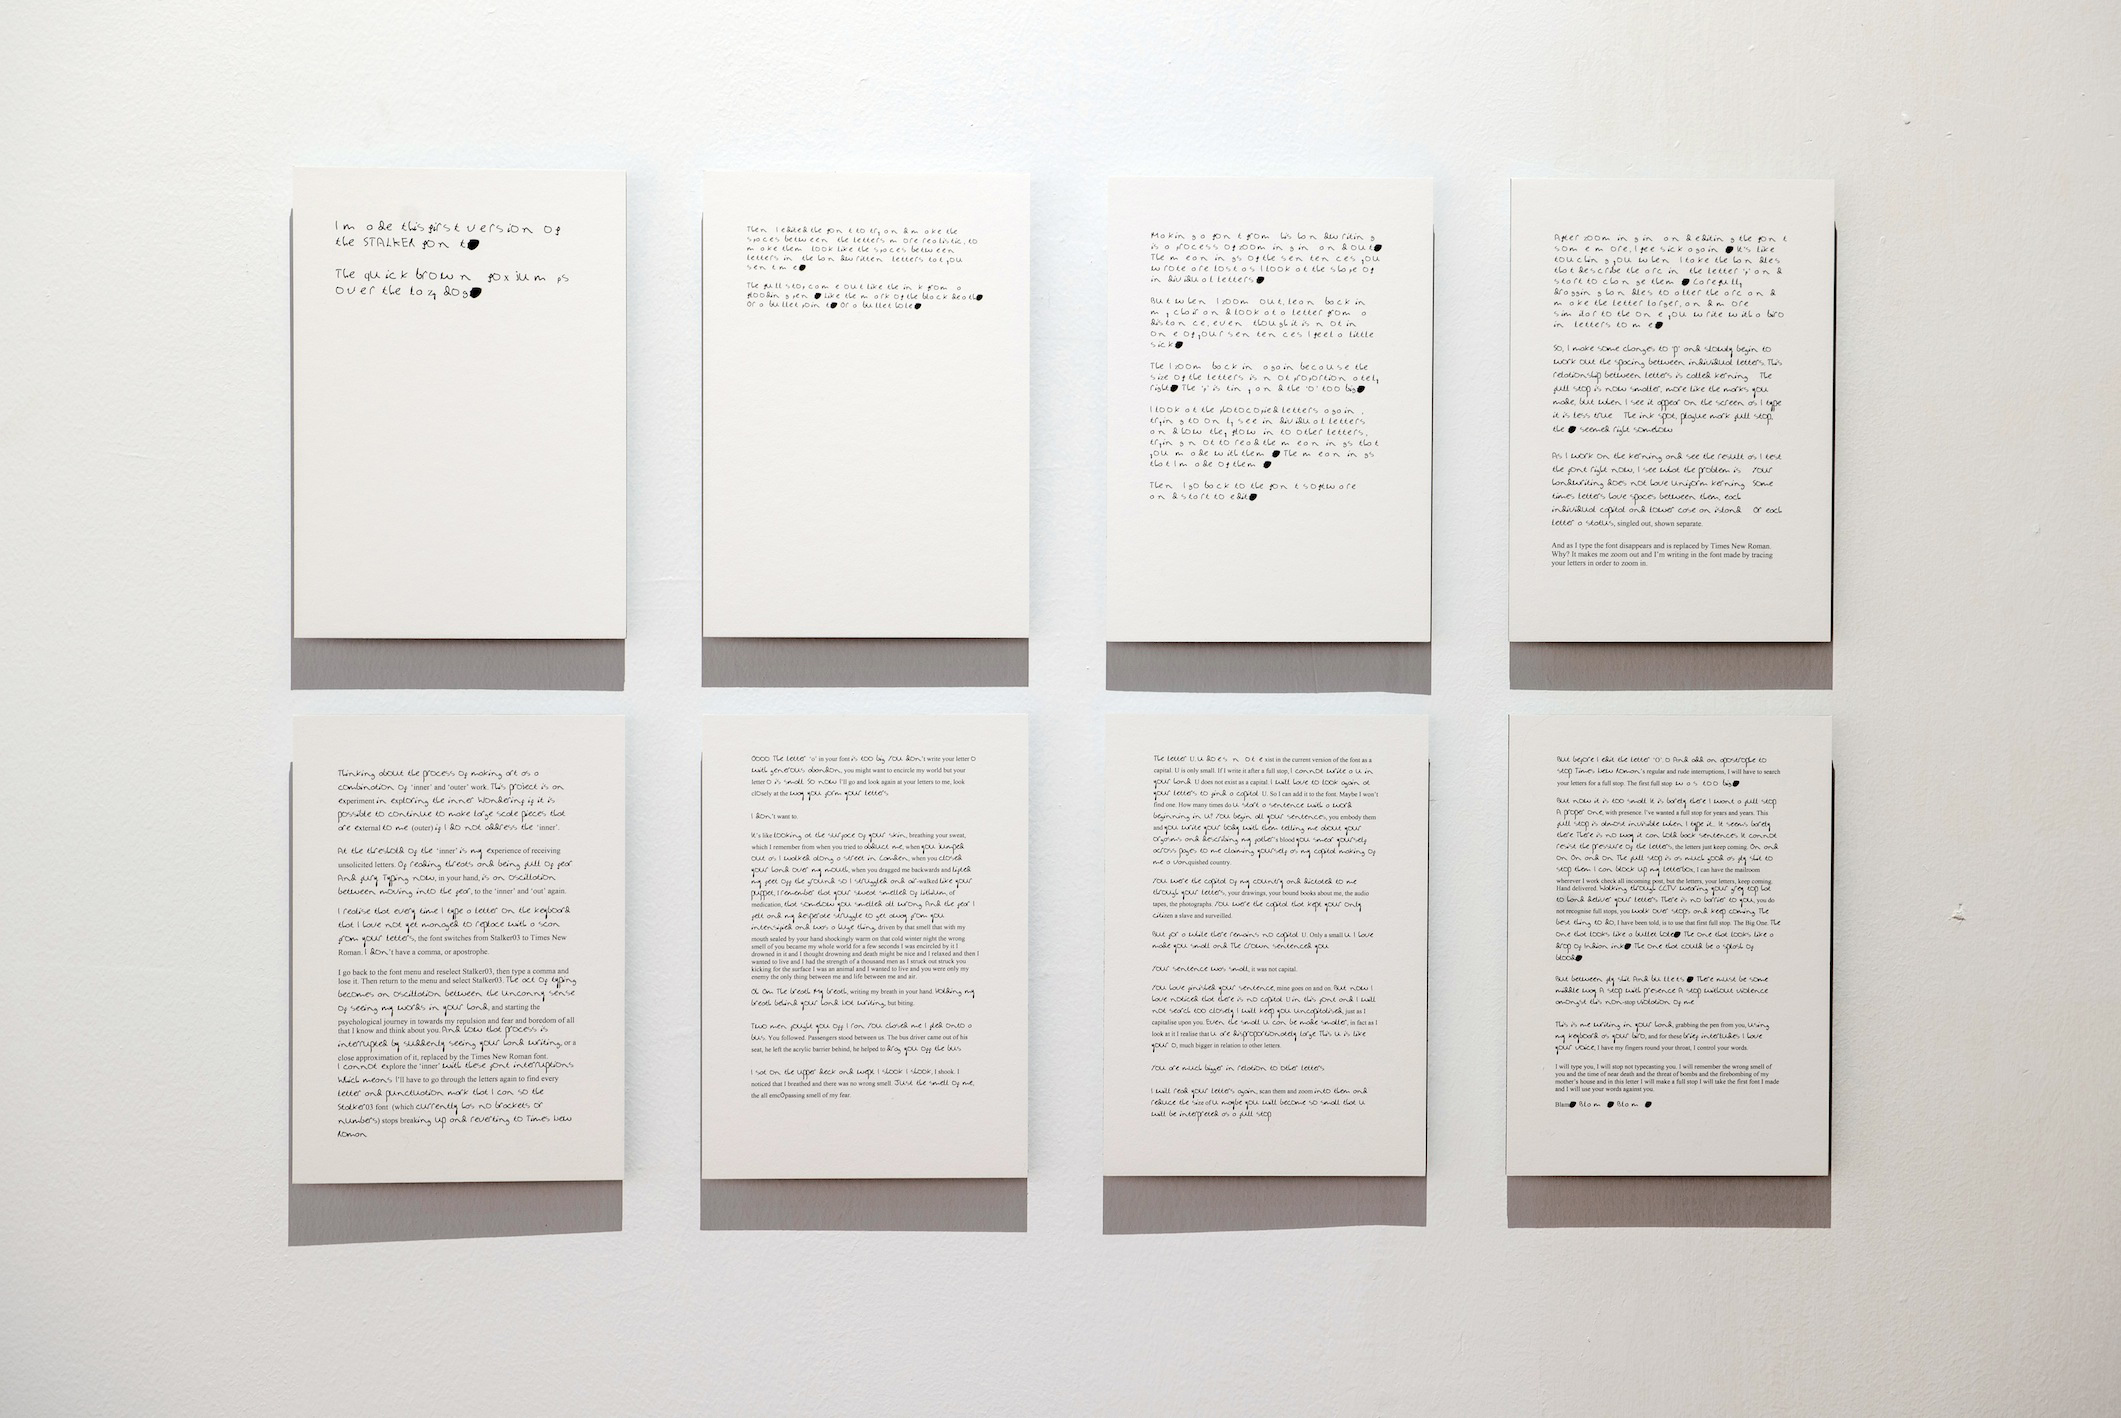 I made this first version of
the STALKER font●
The quick brown fox jumps
over the lazy dog●
Then I edited the font to try and make the
spaces between the letters more realistic, to
make them look like the spaces between
letters in the handwritten letters that you
sent me●
The full stop came out like the ink from a
flooding pen ● like the mark of the black death●
Or a bullet point● Or a bullet hole●
Making a font from his handwriting
is a process of zooming in and out●
The meanings of the sentences you
wrote are lost as I look at the shape of
individual letters●
But when I zoom out, lean back in
my chair and look at a letter from a
distance, even though it is not in
one of your sentences I feel a little
sick●
The I zoom back in again because the
size of the letters is not proportionately
right● The 'y' is tiny and the 'O' too big●
I look at the photocopied letters again,
trying to only see individual letters
and how they flow into other letters,
trying not to read the meanings that
you made with them ● The meanings
that I made of them ●
Then I go back to the font software
and start to edit●
After zooming in and editing the font
some more, I feel sick again ● It's like
touching you when I take the handles
that describe the arc in the letter 'y' and
start to change them ● Carefully
dragging handles to alter the arc and
make the letter larger, and more
similar to the one you write with a biro
in letters to me●
So, I make some changes to 'p' and slowly begin to
work out the spacing between individual letters. This
relationship between letters is called kerning The
full stop is now smaller, more like the marks you
made, but when I see it appear on the screen as I type
it is less true The ink spot, plague mark full stop,
the ● seemed right somehow
As I work on the kerning and see the result as I test
the font right now, I see what the problem is Your
handwriting does not have uniform kerning Some
times letters have spaces between them, each
individual capital and lower case an island Or each
letter a status, singled out, shown separate.
And as I type the font disappears and is replaced by Times New Roman.
Why? It makes me zoom out and I'm writing in the font made by tracing
your letters in order to zoom in.
Thinking about the process of making art as a
combination of 'inner' and 'outer' work. This project is an
experiment in exploring the inner Wondering if it is
possible to continue to make large scale pieces that
are external to me (outer) if I do not address the 'inner'.
At the threshold of the 'inner' is my experience of receiving
unsolicited letters. Of reading threats and being full of fear
And fury Typing now, in your hand, is an oscillation
between moving into the fear, to the 'inner' and 'out' again.
I realise that every time I type a letter on the keyboard
that I have not yet managed to replace with a scan
from your letters, the font switches from Stalker03 to Times New
Roman. I don't have a comma, or apostrophe.
I go back to the font menu and reselect Stalker03, then type a comma and
lose it. Then return to the menu and select Stalker03. The act of typing
becomes an oscillation between the uncanny sense
of seeing my words in your hand, and starting the
psychological journey in towards my repulsion and fear and boredom of all
that I know and think about you. And how that process is
interrupted by suddenly seeing your hand writing, or a
close approximation of it, replaced by the Times New Roman font.
I cannot explore the 'inner' with these font interruptions
Which means I'll have to go through the letters again to find every
letter and punctuation mark that I can so the
Stalker03 font (which currently has no brackets or
numbers) stops breaking up and reverting to Times New
Roman
OOOO The letter 'o' in your font is too big You don't write your letter O
with generous abandon, you might want to encircle my world but your
letter O is small. So now I'll go and look again at your letters to me, look
clOsely at the way you form your letters.
I don't want to.
It's like looking at the surface of your skin, breathing your sweat,
which I remember from when you tried to abduct me, when you jumped
out as I walked along a street in Camden, when you closed
your hand over my mouth, when you dragged me backwards and lifted
my feet off the ground so I struggled and air-walked like your
puppet, I remember that your sweat smelled of lithium, of
medication, that somehow you smelled all wrong And the fear I
felt and my desperate struggle to get away from you
intensified and was a huge thing, driven by that smell that with my
mouth sealed by your hand shockingly warm on that cold winter night the wrong
smell of you became my whole world for a few seconds I was encircled by it I
drowned in it and I thought drowning and death might be nice and I relaxed and then I
wanted to live and I had the strength of a thousand men as I struck out struck you
kicking for the surface I was an animal and I wanted to live and you were only my
enemy the only thing between me and life between me and air.
Oh Om The breath My breath, writing my breath in your hand. Holding my
breath behind your hand Not writing, but biting.
Two men fought you off I ran You chased me I fled onto a
bus. You followed. Passengers stood between us. The bus driver came out of his
seat, he left the acrylic barrier behind, he helped to drag you off the bus
I sat on the upper deck and wept I shook I shook, I shook. I
noticed that I breathed and there was no wrong smell. Just the smell of me,
the all emcOpassing smell of my fear.
The letter U. U does not exist in the current version of the font as a
capital. U is only small. If I write it after a full stop, I cannot write a U in
your hand U does not exist as a capital. I will have to look again at
your letters to find a capital U. So I can add it to the font. Maybe I won't
find one. How many times do u start a sentence with a word
beginning in U? You begin all your sentences, you embody them
and you write your body with them telling me about your
orgasms and describing my father's blood you smear yourself
across pages to me claiming yourself as my capital making of
me a vanquished country.
You were the capital of my country and dictated to me
through your letters, your drawings, your bound books about me, the audio
tapes, the photographs. You were the capital that kept your only
citizen a slave and surveilled.
But for a while there remains no capital U. Only a small u I have
made you small and The Crown sentenced you
Your sentence was small, it was not capital.
You have finished your sentence, mine goes on and on. But now I
have noticed that there is no capital U in this font and I will
not search too closely I will keep you uncapitalised, just as I
capitalise upon you. Even the small u can be made smaller, in fact as I
look at it I realise that u are disproportionately large This U is like
your O, much bigger in relation to other letters.
You are much bigger in relation to other letters
I will read your letters again, scan them and zoom into them and
reduce the size of u maybe you will become so small that u
will be interpreted as a full stop
But before I edit the letter 'O' O And add an apostrophe to
stop Times New Roman's regular and rude interruptions, I will have to search
your letters for a full stop. The first full stop was too big●
But now it is too small It is barely there I want a full stop
A proper one, with presence. I've wanted a full stop for years and years. This
full stop is almost invisible when I type it. It seems barely
there There is no way it can hold back sentences It cannot
resist the pressure of the letters, the letters just keep coming. On and
on. On and on. The full stop is as much good as fly shit to
stop them I can block up my letterbox, I can have the mailroom
wherever I work check all incoming post, but the letters, your letters, keep coming.
Hand delivered. Walking through CCTV wearing your grey top hat
to hand deliver your letters There is no barrier to you, you do
not recognise full stops, you walk over stops and keep coming The
best thing to do, I have been told, is to use that first full stop. The Big One. The
one that looks like a bullet hole● The one that looks like a
drop of Indian ink● The one that could be a splash of
blood●
But between fly shit And bullets ● There must be some
middle way A stop with presence A stop without violence
amongst this non-stop violation of me
This is me writing in your hand, grabbing the pen from you, using
my keyboard as your biro, and for these brief interludes I have
your voice, I have my fingers round your throat, I control your words.
I will type you, I will stop not typecasting you. I will remember the wrong smell of
you and the time of near death and the threat of bombs and the firebombing of my
mother's house and in this letter I will make a full stop I will take the first font I made
and I will use your words against you.
Blam● Blam ● Blam ●